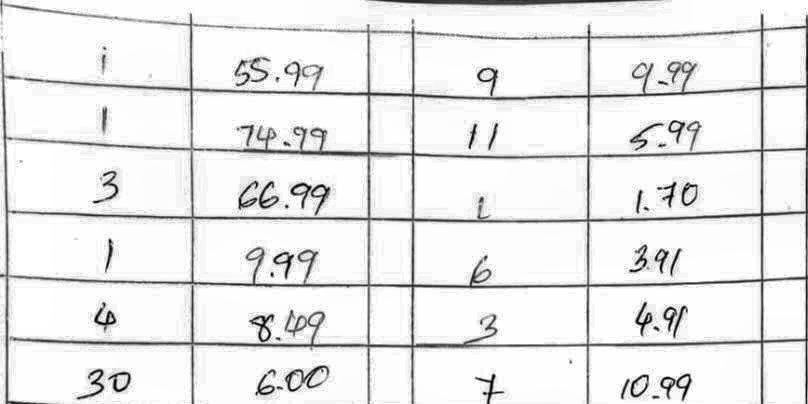 1 55.99 9 9.99
1 74.99 11 5.99
3 66.99 1 1.70
1 9.99 6 3.91
4 8.49 3 4.91
30 6.00 7 10.99